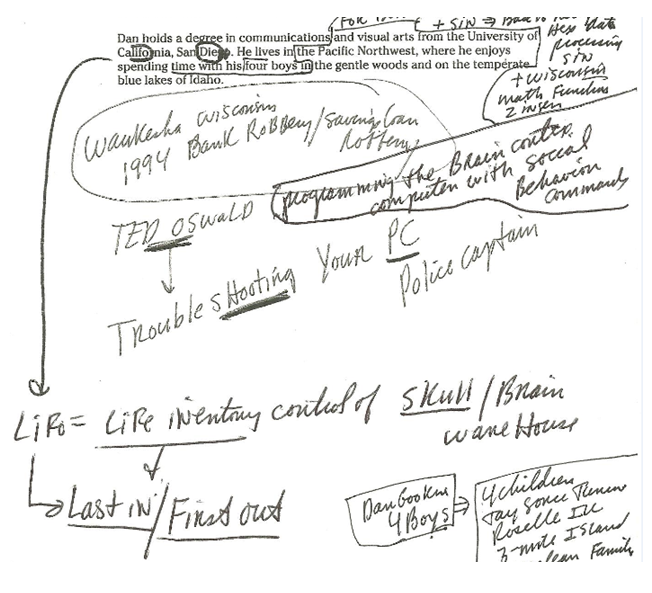 FOR
+ SiN ⇒
Dan holds a degree in communications and visual arts from the University of
California, San Diego. He lives in the Pacific Northwest, where he enjoys
spending time with his four boys in the gentle woods and on the temperate
blue lakes of Idaho.
Hex Data
processing
SiN
+ Wisconsin
math Function
Waukesha Wisconsin
1994 Bank RobBery/saving Loan
programming the Brain
computer with social
Behavior
commands
TED OSWALD
TRoubleSHooting YouR PC
Police captain
LiFo = LiFe iNventory control of SKull / Brain
wareHouse
Last iN / First out
Dan Gookin
4 Boys ⇒
4 children
Roselle Ill
3-mile Island
Family